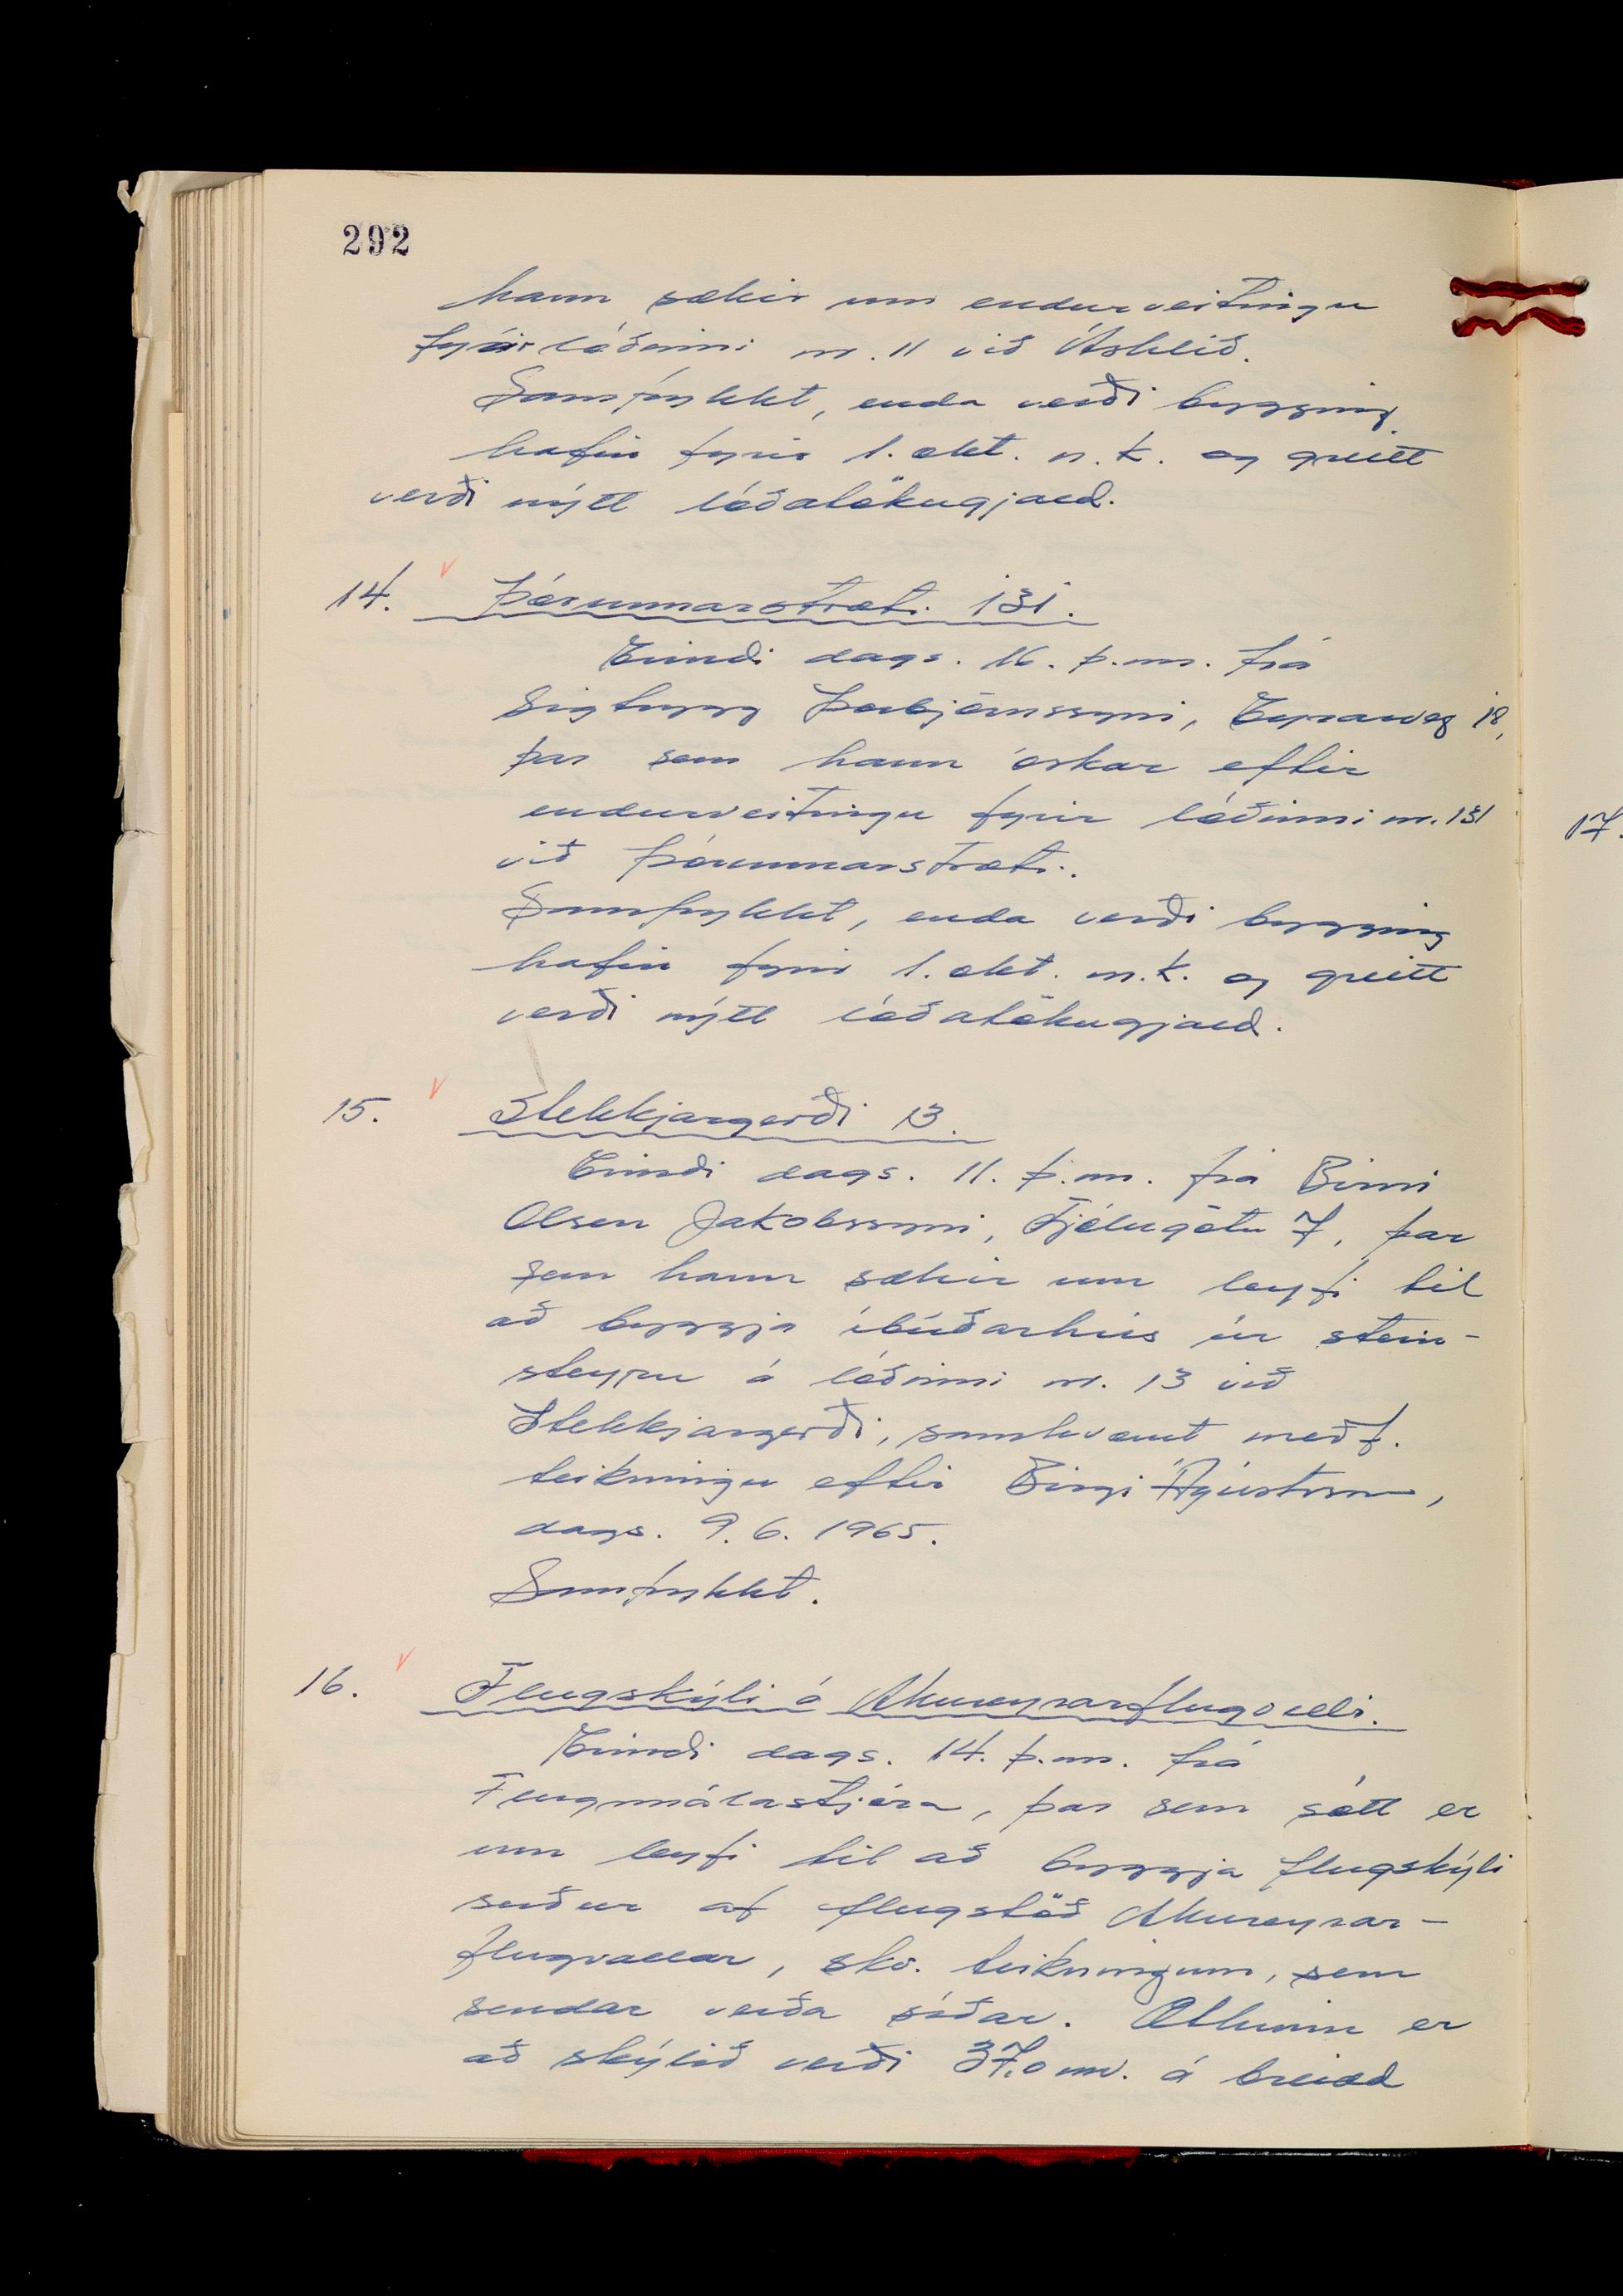 292
hann sækir um endurveitingu
fyrir lóðinni nr. 11 við Áshlíð.
Samþykkt, enda verði bygging
hafin fyrir 1. okt. n.k. og greitt
verði nýtt lóðatökugjald.
14. Þórunnarstræti 131.
Erindi dags. 16. þ.m. frá
Sigtrygg Þorbjörnssyni, Eyrarveg 18,
þar sem hann óskar eftir
endurveitingu fyrir lóðinni nr. 131
við Þórunnarstræti.
Samþykkt, enda verði bygging
hafin fyrir 1. okt. n.k. og greitt
verði nýtt lóðatökugjald.
15. Stekkjargerði 13.
Erindi dags. 11. þ.m. frá Birni
Olsen Jakobssyni, Fjólugötu 7, þar
sem hann sækir um leyfi til
að byggja íbúðarhús úr stein-
steypu á lóðinni nr. 13 við
Stekkjargerði, samkvæmt meðf.
teikningu eftir Birgi Ágústsson,
dags. 9.6.1965.
Samþykkt.
16. Flugskýli á Akureyrarflugvelli.
Erindi dags. 14. þ.m. frá
Flugmálastjóra, þar sem sótt er
um leyfi til að byggja flugskýli
suður af flugstöð Akureyrar-
flugvallar, skv. teikningum, sem
sendar verða síðar. Ætlunin er
að skýlið verði 37,0 m. á breidd
17.